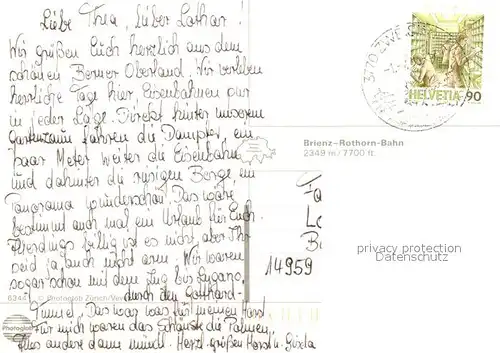 Liebe Thea, lieber Lothar!
Wir grüßen Euch herzlich aus dem
schönen Berner Oberland. Wir verleben
herrliche Tage hier, Eisenbahnen pur
in jeder Lage. Direkt hinter unserem
Gartenzaun fahren die Dampfer, ein
paar Meter weiter die Eisenbahn
und dahinter die riesigen Berge, im
Panorama wunderschön. Das wäre
bestimmt auch mal ein Urlaub für Euch.
Allerdings billig ist es nicht, aber Ihr
seid ja auch nicht arm. Wir waren
sogar schon mit dem Zug bis Lugano,
durch den Gotthard-
Tunnel. Das war was für meinen Horst
Für mich waren das Schönste die Palmen,
Alles andere dann mündl. Herzl. grüßen Horst u. Gisela
3770 ZWE
HELVETIA 90
Brienz-Rothorn-Bahn
2349 m / 7700 ft.
14959
privacy protection
Datenschutz
6344 © Photoglob Zürich/Vev
Photoglob